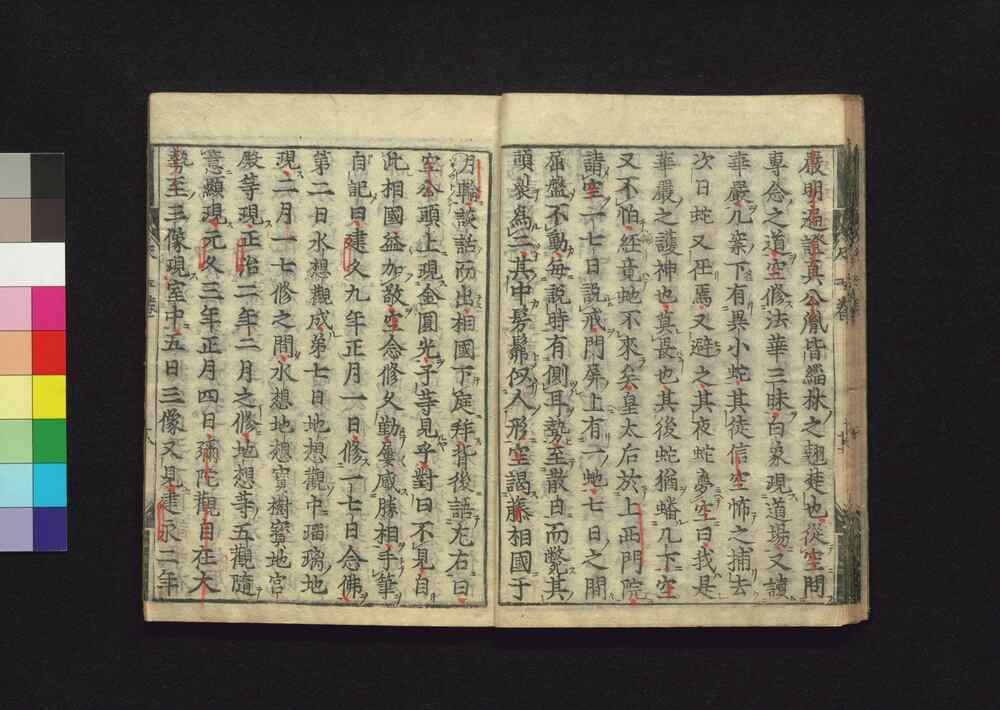 嚴明遍證眞公胤皆緇林之翹楚也從空問
專念之道空修法華三昧白象現道場又讀
華嚴几案下有異小蛇其徒信空怖之捕去
次日蛇又在焉又避之其夜蛇夢空曰我是
華嚴之護神也莫畏也其後蛇猶蟠几下空
又不怕經竟蛇不來矣皇太后於上西門院
請空一七日說戒門屏上有一蛇七日之間
屈盤不動每說時有側耳勢至散日而斃其
頭裂爲三其中髣髴似人形空謁藤相國于
月輪談話而出相國下庭拜背後語左右曰
空公頭上現金圓光予等見乎對曰不見自
此相國益加敬空念修久勤屢感勝相手筆
自記曰建久九年正月一日修一七日念佛
第二日水想觀成第七日地想觀中瑠璃地
現二月一七修之間水想地想寶樹寶地宮
殿等現正治二年二月之修地想等五觀隨
意顯現元久三年正月四日彌陀觀自在大
勢至三像現室中五日三像又見建永二年